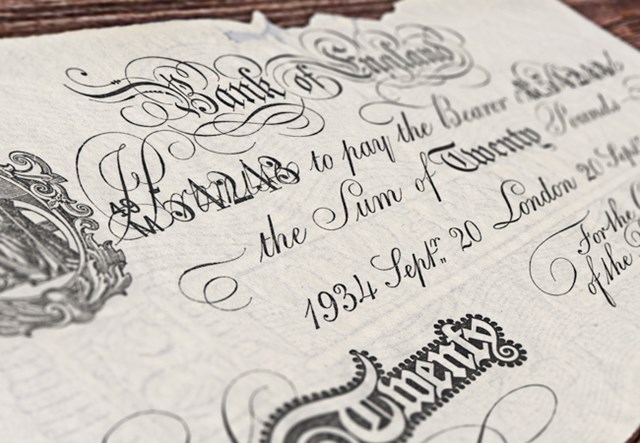 Bank of England
to pay the Bearer
the Sum of Twenty Pounds
1934 Septr. 20 London 20 Sept
For the
of the
Twenty